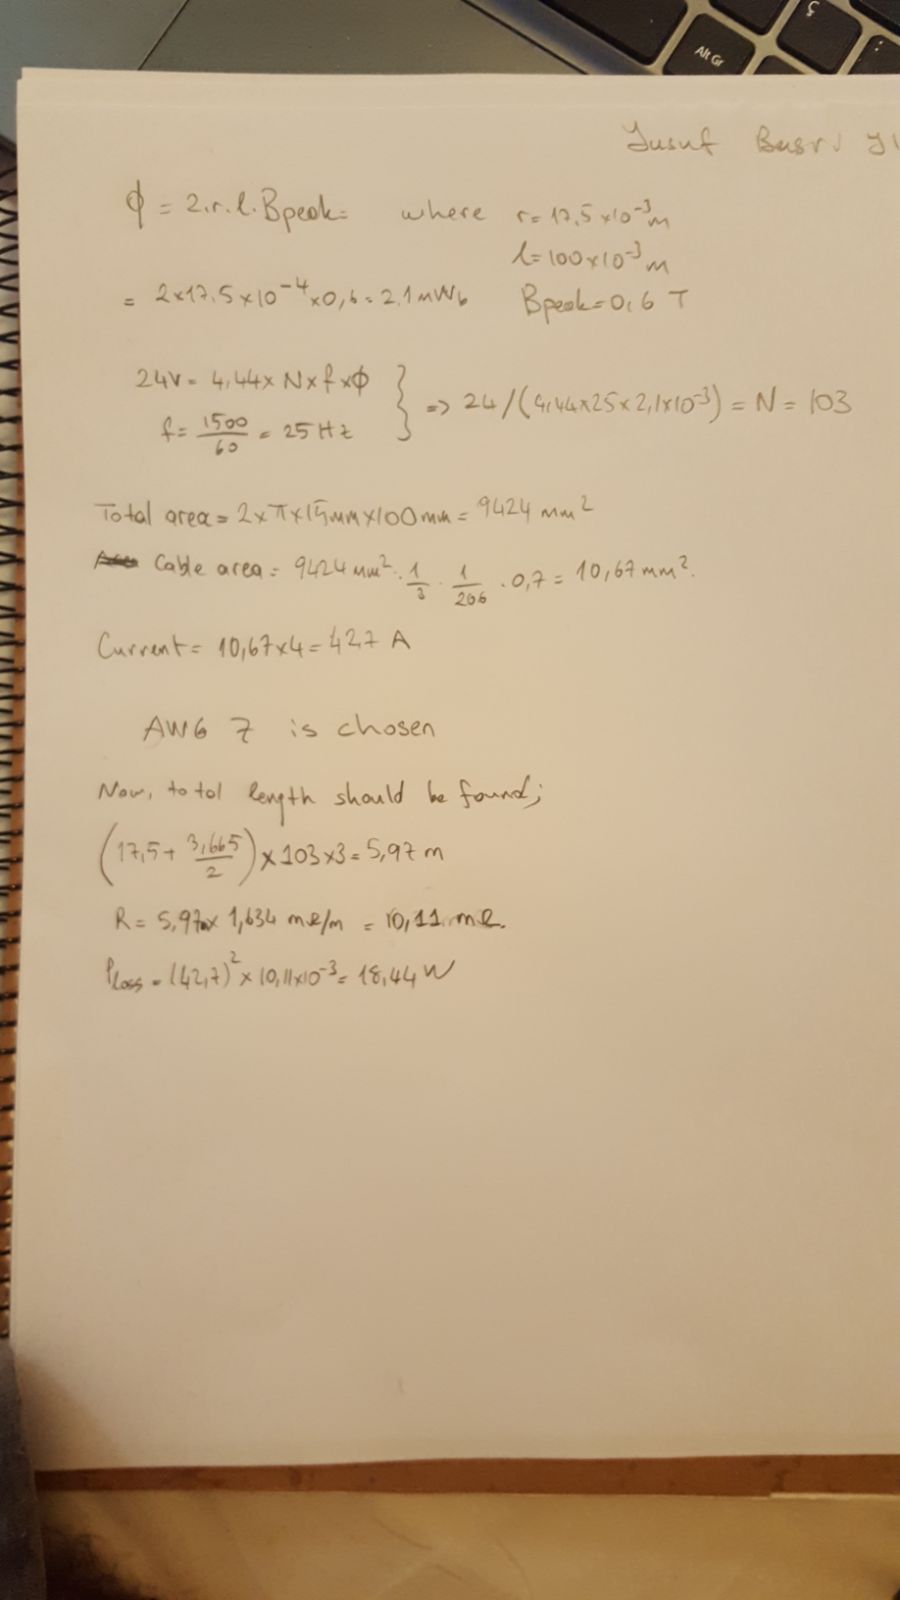 Alt Gr
Ç
Yusuf Basri
ϕ = 2.r.l.Bpeak= where r= 17,5 x10⁻³ m
l= 100x10⁻³ m
= 2x17,5x10⁻⁴x0,6= 2,1 mWb Bpeak=0,6 T
24V= 4,44x N x f x ϕ
f= 1500/60 = 25 Hz } => 24/(4,44x25x2,1x10⁻³) = N = 103
Total area = 2 x π x 15mm x 100 mm = 9424 mm²
Cable area = 9424 mm² . 1/3 . 1/206 . 0,7 = 10,67 mm².
Current = 10,67x4 = 42,7 A
AWG 7 is chosen
Now, total length should be found;
(17,5 + 3,665/2) x 103 x 3 = 5,97 m
R = 5,97 x 1,634 mΩ/m = 10,11 mΩ.
Ploss = (42,7)² x 10,11x10⁻³ = 18,44 W